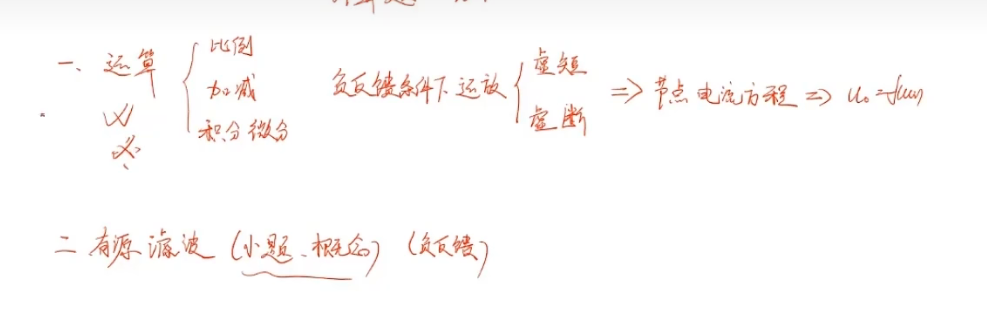 一、运算 { 比例 加减 积分微分 负反馈条件下运放 { 虚短 虚断 ⇒ 节点电流方程 ⇒ u₀=f(uᵢₙ)
二 有源滤波 (小题、概念) (负反馈)